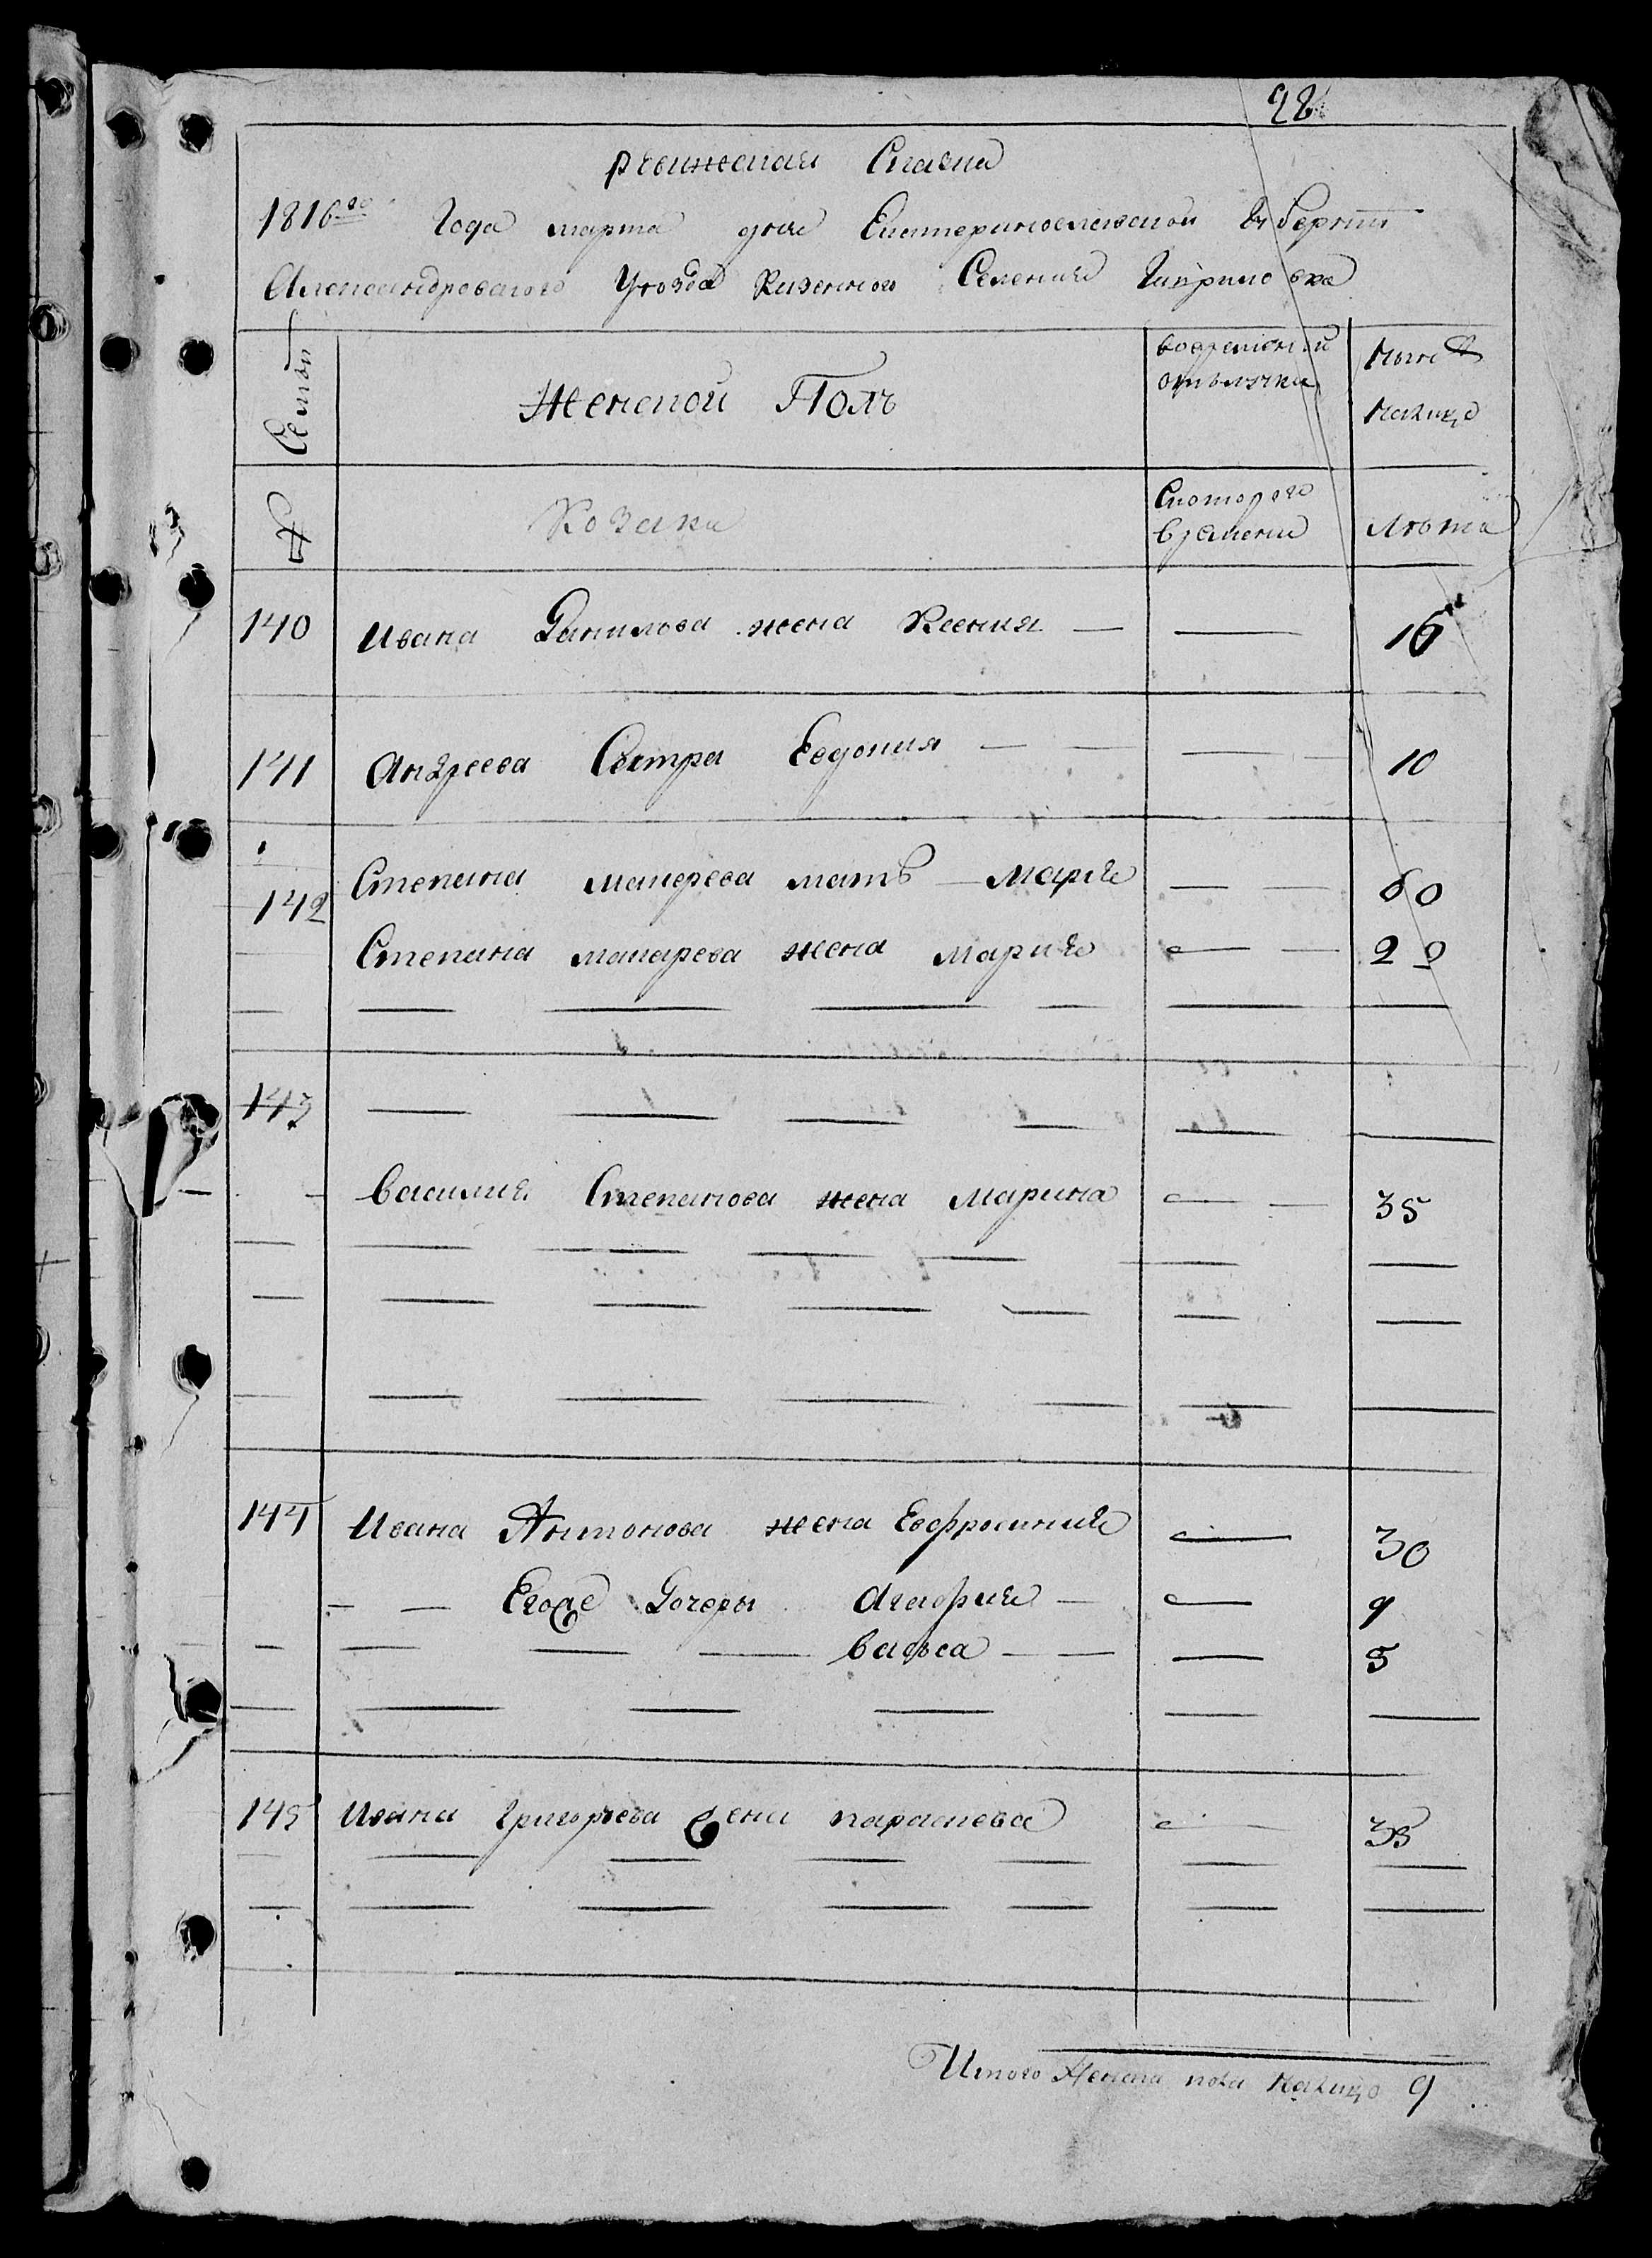 98
ревижская Сказка
1816го Года марта дня Екатеринославской Губернии
Александровского Уезда Казенного Селения Гаврило вка
Семьи
Женской Полъ
вовременной отълучки
Ныне на лицо
№
Козаки
Скоторого времени
Лѣта
140 Ивана Данилова жена Ксения — — 16
141 Андреева Сестра Евдокия — — — 10
142 Степана макарева мать — Мария — — 60
Степана макарева жена Мария — — 20
143
Василия Степанова жена Марина — — 35
144 Ивана Антонова жена Евфросиния — 30
— — Егоже Дочеры Агафия — — 9
— — — — Васса — — — 5
145 Ивана Григорьева жена параскева — 35
Итого Женска пола налицо 9